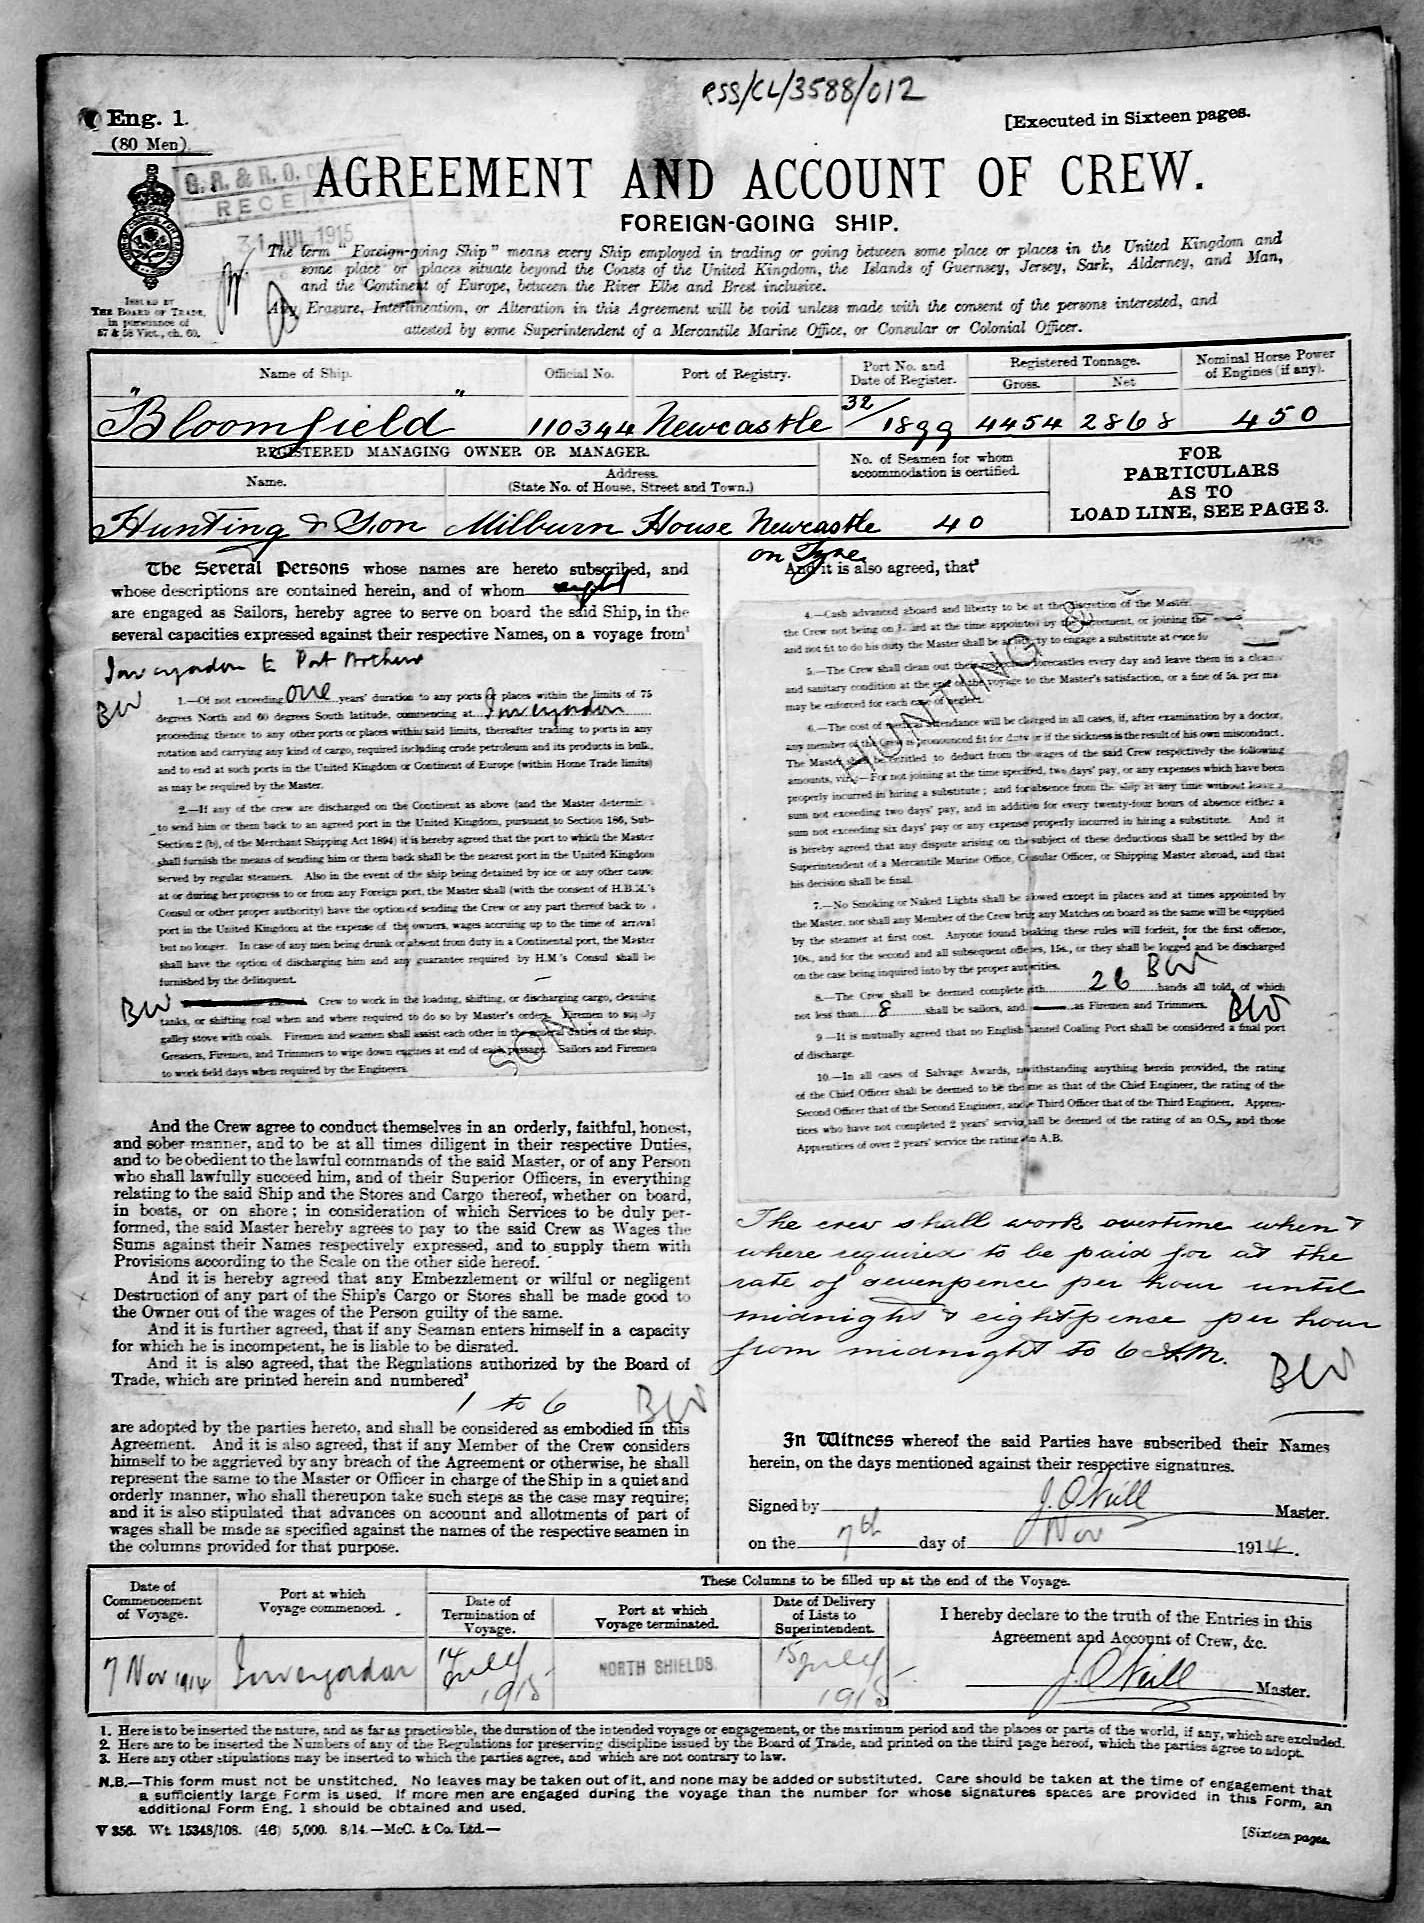 RSS/CL/3588/012
Eng. 1.
(80 Men)
[Executed in Sixteen pages.
G. R. & R. O.
RECE
31 JUL 1915
AGREEMENT AND ACCOUNT OF CREW.
FOREIGN-GOING SHIP.
The term "Foreign-going Ship" means every Ship employed in trading or going between some place or places in the United Kingdom and
some place or places situate beyond the Coasts of the United Kingdom, the Islands of Guernsey, Jersey, Sark, Alderney, and Man,
and the Continent of Europe, between the River Elbe and Brest inclusive.
Any Erasure, Interlineation, or Alteration in this Agreement will be void unless made with the consent of the persons interested, and
attested by some Superintendent of a Mercantile Marine Office, or Consular or Colonial Officer.
ISSUED BY
THE BOARD OF TRADE,
in pursuance of
57 & 58 Vict., ch. 60.
Name of Ship. Official No. Port of Registry. Port No. and Date of Register. Registered Tonnage. Gross. Net Nominal Horse Power of Engines (if any).
"Bloomfield" 110344 Newcastle 32/1899 4454 2868 450
REGISTERED MANAGING OWNER OR MANAGER.
Name. Address. (State No. of House, Street and Town.)
No. of Seamen for whom accommodation is certified.
FOR
PARTICULARS
AS TO
LOAD LINE, SEE PAGE 3.
Hunting & Son Milburn House Newcastle on Tyne 40
The Several Persons whose names are hereto subscribed, and
whose descriptions are contained herein, and of whom eight
are engaged as Sailors, hereby agree to serve on board the said Ship, in the
several capacities expressed against their respective Names, on a voyage from¹
Invergordon to Port Arthur
BW
1.—Of not exceeding one years' duration to any ports or places within the limits of 75
degrees North and 60 degrees South latitude, commencing at Invergordon
proceeding thence to any other ports or places within said limits, thereafter trading to ports in any
rotation and carrying any kind of cargo, required including crude petroleum and its products in bulk,
and to end at such ports in the United Kingdom or Continent of Europe (within Home Trade limits)
as may be required by the Master.
2.—If any of the crew are discharged on the Continent as above (and the Master determin
to send him or them back to an agreed port in the United Kingdom, pursuant to Section 186, Sub-
Section 2 (b), of the Merchant Shipping Act 1894) it is hereby agreed that the port to which the Master
shall furnish the means of sending him or them back shall be the nearest port in the United Kingdom
served by regular steamers. Also in the event of the ship being detained by ice or any other cause
at or during her progress to or from any Foreign port, the Master shall (with the consent of H.B.M.'s
Consul or other proper authority) have the option of sending the Crew or any part thereof back to
port in the United Kingdom at the expense of the owners, wages accruing up to the time of arrival
but no longer. In case of any men being drunk or absent from duty in a Continental port, the Master
shall have the option of discharging him and any guarantee required by H.M.'s Consul shall be
furnished by the delinquent.
BW Crew to work in the loading, shifting, or discharging cargo, cleaning
tanks, or shifting coal when and where required to do so by Master's orders. Firemen to supply
galley stove with coals. Firemen and seamen shall assist each other in the general duties of the ship.
Greasers, Firemen, and Trimmers to wipe down engines at end of each passage. Sailors and Firemen
to work field days when required by the Engineers.
SON
And the Crew agree to conduct themselves in an orderly, faithful, honest,
and sober manner, and to be at all times diligent in their respective Duties,
and to be obedient to the lawful commands of the said Master, or of any Person
who shall lawfully succeed him, and of their Superior Officers, in everything
relating to the said Ship and the Stores and Cargo thereof, whether on board,
in boats, or on shore; in consideration of which Services to be duly per-
formed, the said Master hereby agrees to pay to the said Crew as Wages the
Sums against their Names respectively expressed, and to supply them with
Provisions according to the Scale on the other side hereof.
And it is hereby agreed that any Embezzlement or wilful or negligent
Destruction of any part of the Ship's Cargo or Stores shall be made good to
the Owner out of the wages of the Person guilty of the same.
And it is further agreed, that if any Seaman enters himself in a capacity
for which he is incompetent, he is liable to be disrated.
And it is also agreed, that the Regulations authorized by the Board of
Trade, which are printed herein and numbered²
1 to 6 BW
are adopted by the parties hereto, and shall be considered as embodied in this
Agreement. And it is also agreed, that if any Member of the Crew considers
himself to be aggrieved by any breach of the Agreement or otherwise, he shall
represent the same to the Master or Officer in charge of the Ship in a quiet and
orderly manner, who shall thereupon take such steps as the case may require;
and it is also stipulated that advances on account and allotments of part of
wages shall be made as specified against the names of the respective seamen in
the columns provided for that purpose.
And it is also agreed, that³
4.—Cash advanced aboard and liberty to be at the discretion of the Master.
the Crew not being on board at the time appointed by the agreement, or joining the
and not fit to do his duty the Master shall be at liberty to engage a substitute at once
5.—The Crew shall clean out their respective forecastles every day and leave them in a clean
and sanitary condition at the end of the voyage to the Master's satisfaction, or a fine of 5s. per ma
may be enforced for each case of neglect.
6.—The cost of medical attendance will be charged in all cases, if, after examination by a doctor,
any member of the Crew is pronounced fit for duty or if the sickness is the result of his own misconduct.
The Master shall be entitled to deduct from the wages of the said Crew respectively the following
amounts, viz.:—For not joining at the time specified, two days' pay, or any expenses which have been
properly incurred in hiring a substitute; and for absence from the ship at any time without leave a
sum not exceeding two days' pay, and in addition for every twenty-four hours of absence either a
sum not exceeding six days' pay or any expense properly incurred in hiring a substitute. And it
is hereby agreed that any dispute arising on the subject of these deductions shall be settled by the
Superintendent of a Mercantile Marine Office, Consular Officer, or Shipping Master abroad, and that
his decision shall be final.
HUNTING &
7.—No Smoking or Naked Lights shall be allowed except in places and at times appointed by
the Master, nor shall any Member of the Crew bring any Matches on board as the same will be supplied
by the steamer at first cost. Anyone found breaking these rules will forfeit, for the first offence,
10s., and for the second and all subsequent offences, 15s., or they shall be logged and be discharged
on the case being inquired into by the proper authorities.
8.—The Crew shall be deemed complete with 26 BW hands all told, of which
not less than 8 shall be sailors, and as Firemen and Trimmers. BW
9.—It is mutually agreed that no English Channel Coaling Port shall be considered a final port
of discharge.
10.—In all cases of Salvage Awards, notwithstanding anything herein provided, the rating
of the Chief Officer shall be deemed to be the same as that of the Chief Engineer, the rating of the
Second Officer that of the Second Engineer, and the Third Officer that of the Third Engineer. Appren-
tices who have not completed 2 years' service shall be deemed of the rating of an O.S., and those
Apprentices of over 2 years' service the rating of an A.B.
The crew shall work overtime when &
where required to be paid for at the
rate of sevenpence per hour until
midnight & eightpence per hour
from midnight to 6 A.M.
BW
In Witness whereof the said Parties have subscribed their Names
herein, on the days mentioned against their respective signatures.
Signed by J. O'Neill Master.
on the 7th day of Nov 1914.
Date of Commencement of Voyage. Port at which Voyage commenced. These Columns to be filled up at the end of the Voyage.
Date of Termination of Voyage. Port at which Voyage terminated. Date of Delivery of Lists to Superintendent.
I hereby declare to the truth of the Entries in this
Agreement and Account of Crew, &c.
7 Nov 1914 Invergordon 14 July 1915 NORTH SHIELDS. 15 July 1915 J. O'Neill Master.
1. Here is to be inserted the nature, and as far as practicable, the duration of the intended voyage or engagement, or the maximum period and the places or parts of the world, if any, which are excluded.
2. Here are to be inserted the Numbers of any of the Regulations for preserving discipline issued by the Board of Trade, and printed on the third page hereof, which the parties agree to adopt.
3. Here any other stipulations may be inserted to which the parties agree, and which are not contrary to law.
N.B.—This form must not be unstitched. No leaves may be taken out of it, and none may be added or substituted. Care should be taken at the time of engagement that
a sufficiently large Form is used. If more men are engaged during the voyage than the number for whose signatures spaces are provided in this Form, an
additional Form Eng. 1 should be obtained and used.
V 356. Wt. 15348/108. (46) 5,000. 8/14.—McC. & Co. Ltd.—
[Sixteen pages.